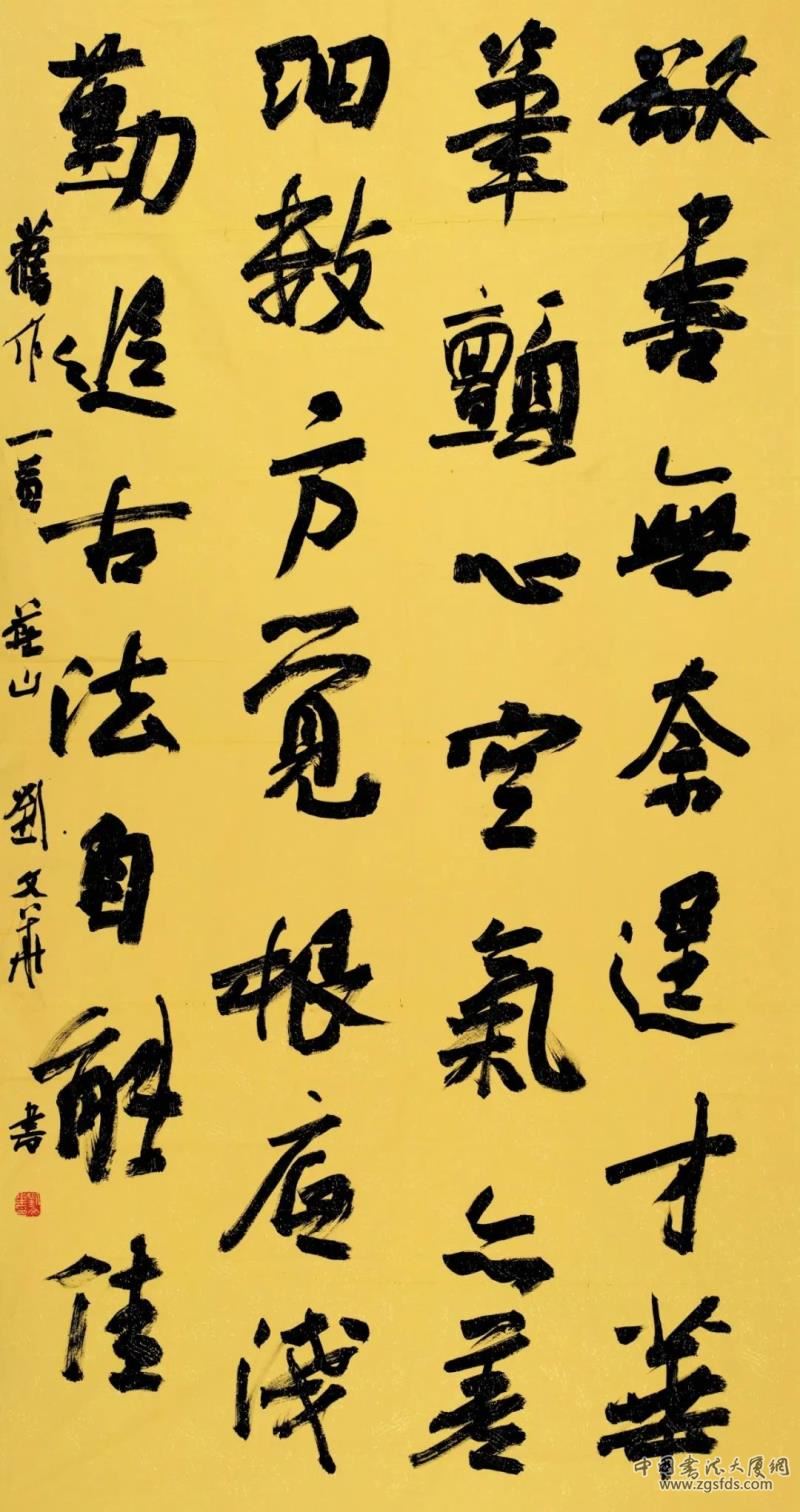 欲書無奈逞才華
筆顫心空氣亦差
細數方覺根底淺
勤追古法自能佳
舊作一首 燕山 劉文華 書
中国書法大廈網
www.zgsfds.com